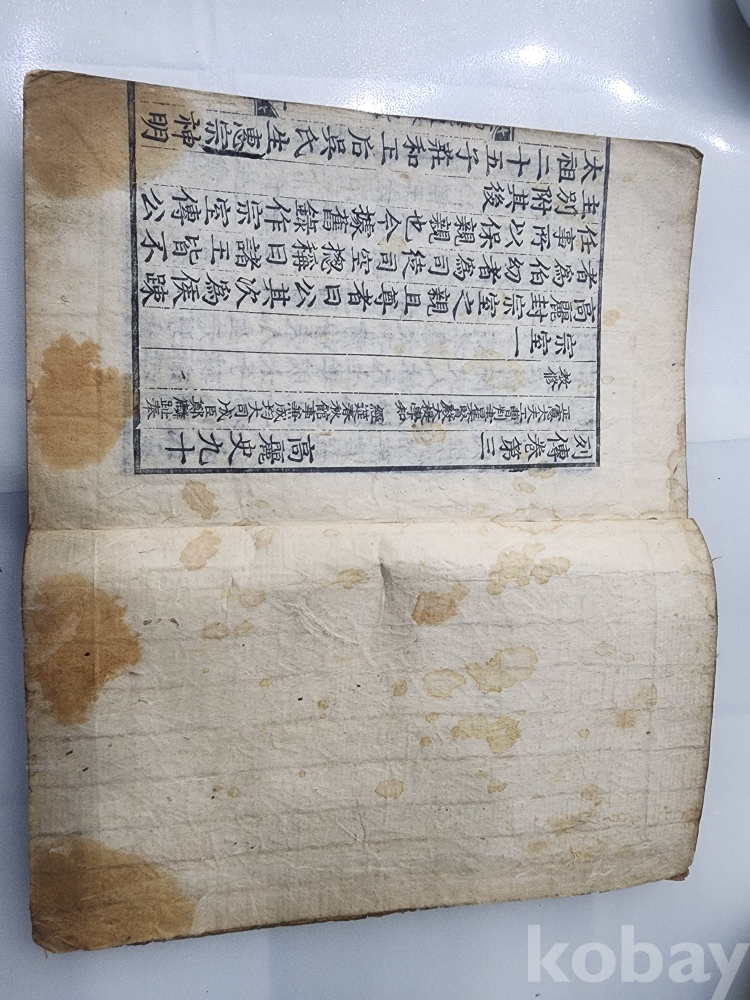 列傳卷第三 高麗史九十
正憲大夫工曹判書集賢殿大提學知 經筵春秋館事兼成均大司成臣鄭麟趾奉
敎修
宗室一
高麗封宗室之親且尊者曰公其次爲侯疎
者爲伯幼者爲司徒司空摠稱曰諸王皆不
任事所以保親親也今據舊錄作宗室傳公
主別附其後
太祖二十五子莊和王后吳氏生惠宗神明
kobay